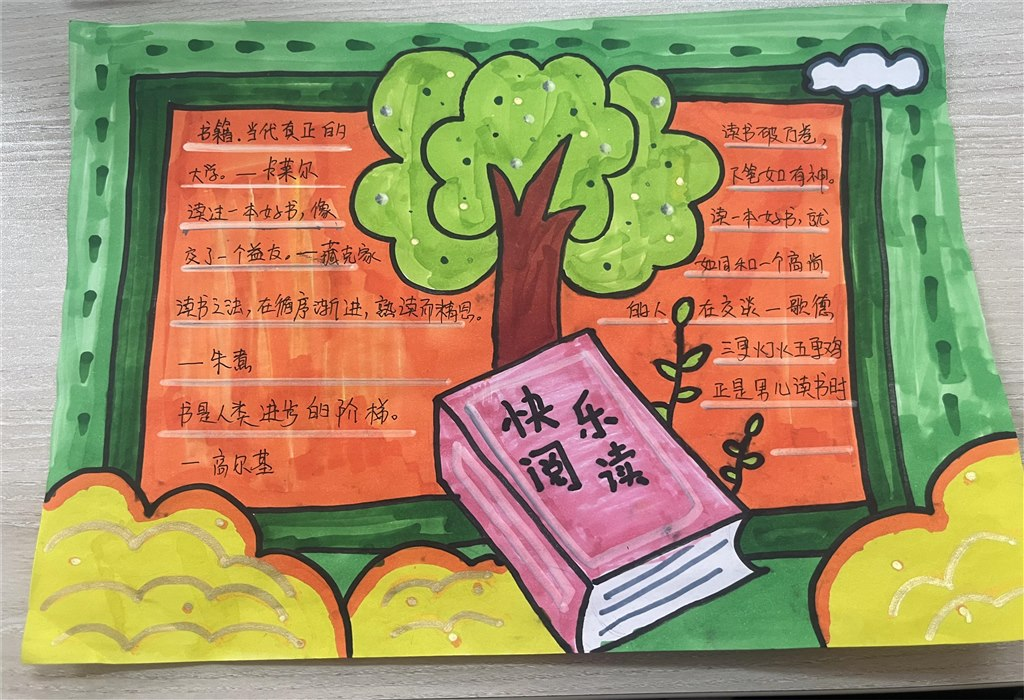 书籍.当代真正的
大学。—卡莱尔
读过一本好书，像
交了一个益友。—藏克家
读书之法，在循序渐进，熟读而精思。
—朱熹
书是人类进步的阶梯。
—高尔基
快乐
阅读
读书破万卷，
下笔如有神。
读一本好书，就
如同和一个高尚
的人在交谈—歌德
三更灯火五更鸡
正是男儿读书时